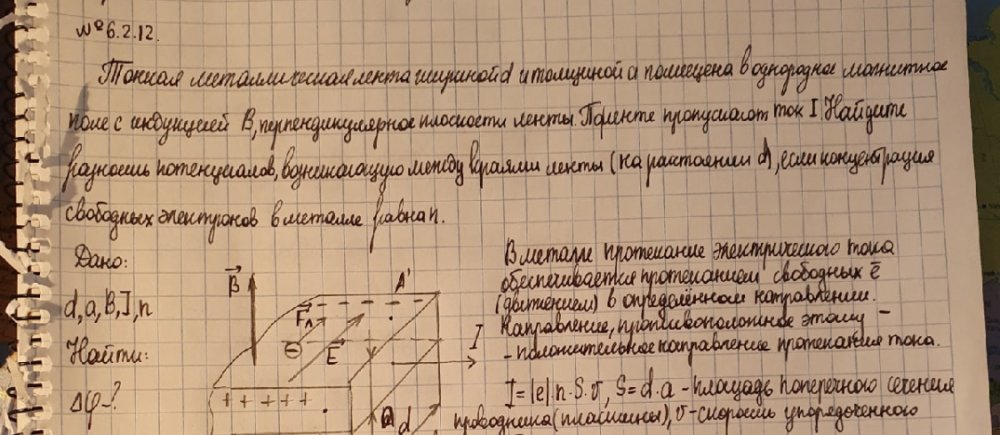 №6.2.12.
Тонкая металлическая лента шириной d и толщиной a помещена в однородное магнитное
поле с индукцией B, перпендикулярное плоскости ленты. По ленте пропускают ток I. Найдите
разность потенциалов, возникающую между краями ленты (на растоянии d), если концентрация
свободных электронов в металле равна n.
Дано:
d, a, B, I, n
Найти:
Δφ-?
B⃗
A'
Fл
⊖
E⃗
I
+ + + + +
a
d
В металле протекание электрического тока
обеспечивается протеканием свободных ē
(движением) в определённом направлении.
Направление, противоположное этому –
- положительное направление протекания тока.
I = |e|·n·S·v, S = d·a - площадь поперечного сечения
проводника (пластины), v - скорость упорядоченного